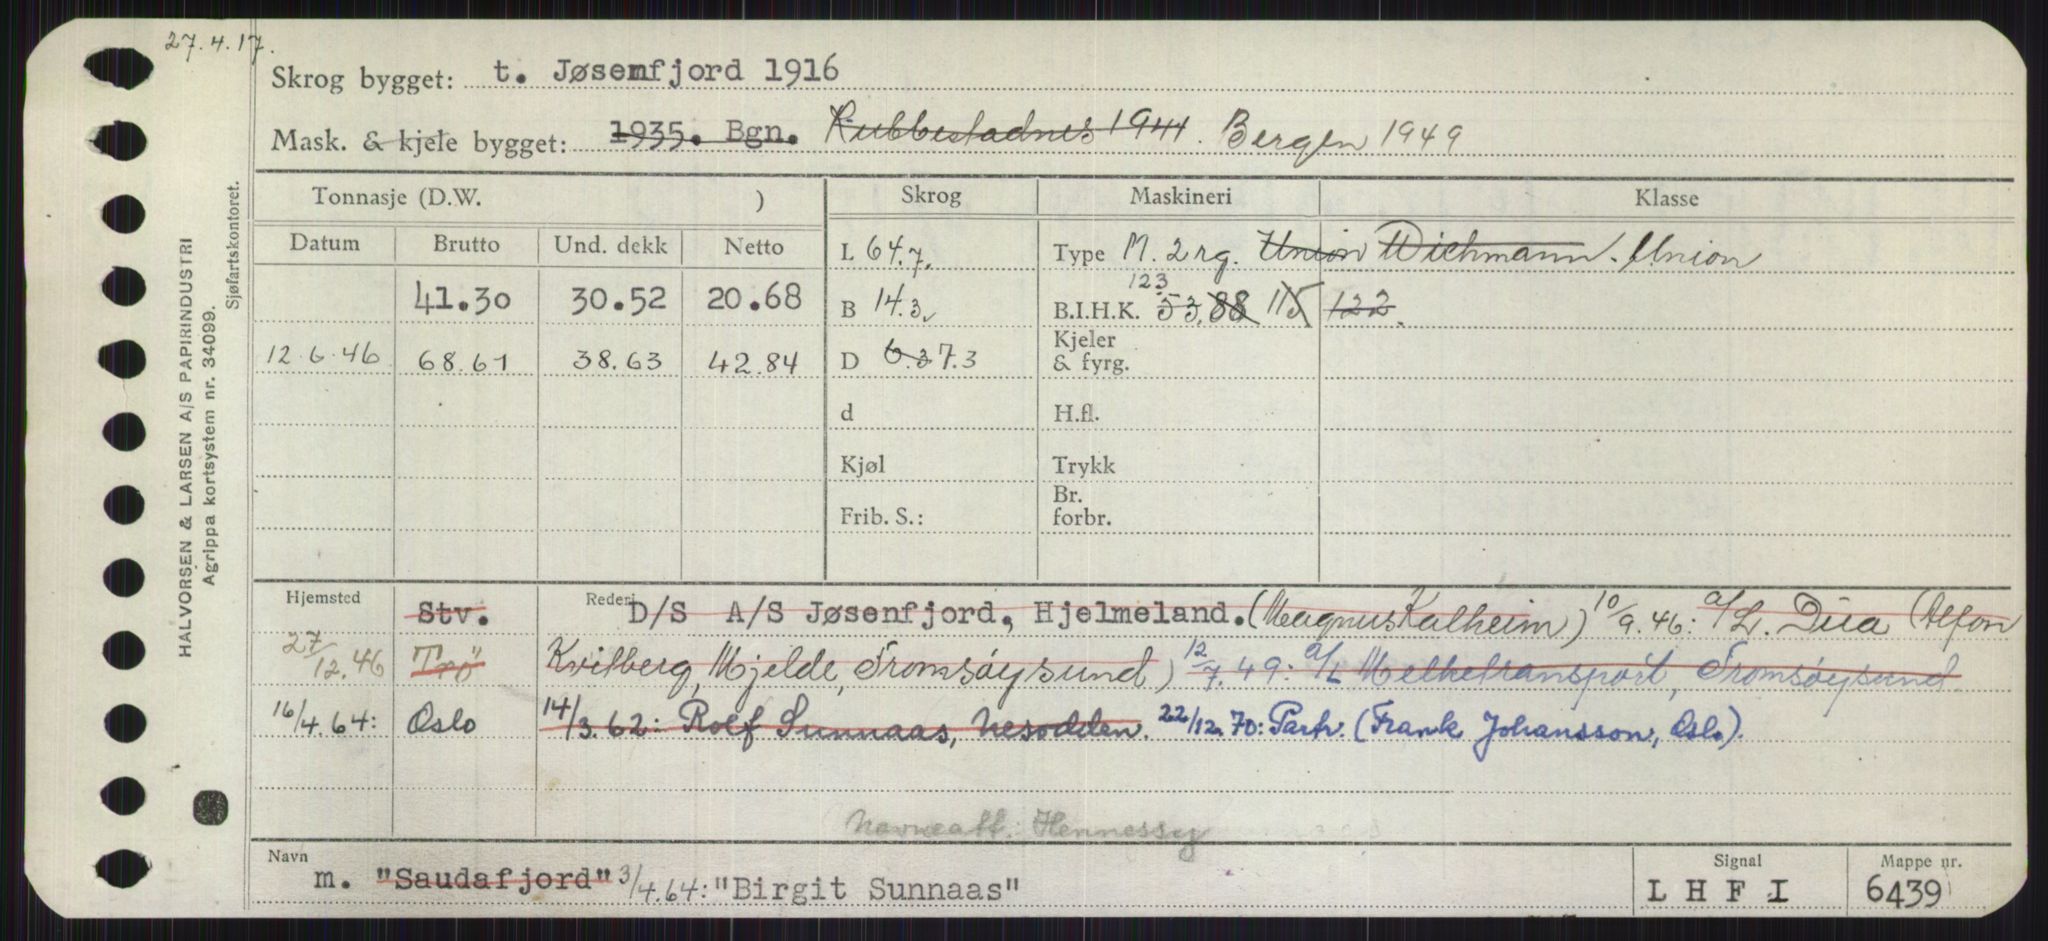 27.4.17.
Skrog bygget: t. Jøsenfjord 1916
Mask. & kjele bygget: 1935. Bgn. Rubbestadnes 1941. Bergen 1949
Tonnasje (D.W. ) Skrog Maskineri Klasse
Datum Brutto Und. dekk Netto L 64.7. Type M. 2 rg. Union Wichmann. Union
41.30 30.52 20.68 B 14.3, B.I.H.K. 123 53. 88 115 122.
12.6.46 68.61 38.63 42.84 D 6.3 7.3 Kjeler & fyrg.
d H.fl.
Kjøl Trykk
Frib. S.: Br. forbr.
Hjemsted Stv. Rederi D/S A/S Jøsenfjord, Hjelmeland. (Magnus Kalheim) 10/9.46: a/L. Dua (Alfon
27/12.46 Trö Kvitberg, Mjelde, Tromsøysund) 12/7.49: a/L Melketransport, Tromsøysund.
16/4.64: Oslo 14/3.62: Rolf Sunnaas, Nesodden. 22/12.70: Partr. (Frank Johansson, Oslo).
Navneatt. Hennessy
Navn m. "Saudafjord" 3/4.64: "Birgit Sunnaas" Signal LHFI Mappe nr. 6439
HALVORSEN & LARSEN A/S PAPIRINDUSTRI
Agrippa kortsystem nr. 34099.
Sjøfartskontoret.